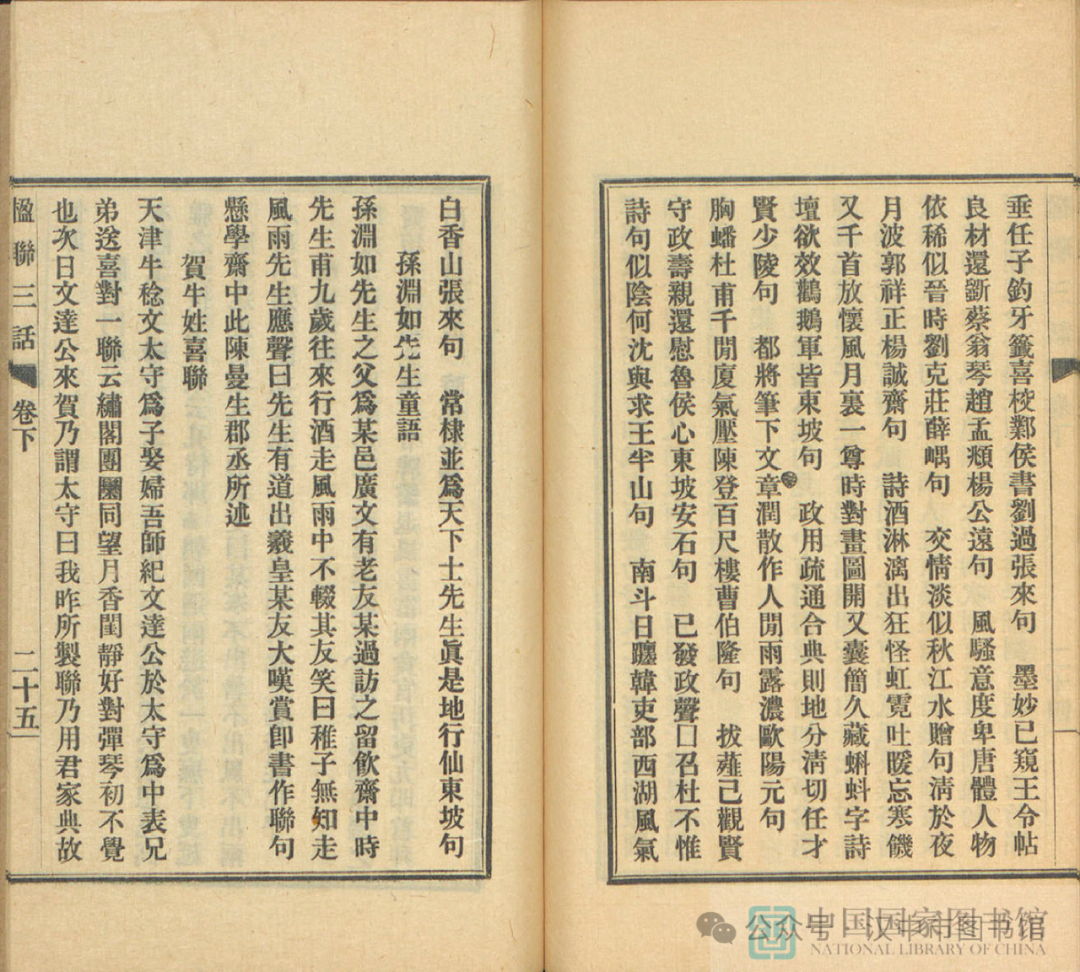 垂任子鈞牙籤喜校鄴侯書劉過張來句　墨妙已窺王令帖
良材還斵蔡翁琴趙孟頫楊公遠句　風騷意度卑唐體人物
依稀似晉時劉克莊薛嵎句　交情淡似秋江水贈句清於夜
月波郭祥正楊誠齋句　詩酒淋漓出狂怪虹霓吐暖忘寒饑
又千首放懷風月裏一尊時對畫圖開又囊簡久藏蝌蚪字詩
壇欲效鸛鵝軍皆東坡句　政用疏通合典則地分清切任才
賢少陵句　都將筆下文章潤散作人閒雨露濃歐陽元句
胸蟠杜甫千閒廈氣壓陳登百尺樓曹伯隆句　拔薤已觀賢
守政壽親還慰魯侯心東坡安石句　已發政聲囗召杜不惟
詩句似陰何沈與求王半山句　南斗日躔韓吏部西湖風氣
白香山張來句　常棣並爲天下士先生眞是地行仙東坡句
孫淵如先生童語
孫淵如先生之父爲某邑廣文有老友某過訪之留飮齋中時
先生甫九歲往來行酒走風雨中不輟其友笑曰稚子無知走
風雨先生應聲曰先生有道出羲皇某友大嘆賞卽書作聯句
懸學齋中此陳曼生郡丞所述
賀牛姓喜聯
天津牛稔文太守爲子娶婦吾師紀文達公於太守爲中表兄
弟送喜對一聯云繡閣團圞同望月香閨靜好對彈琴初不覺
也次日文達公來賀乃謂太守曰我昨所製聯乃用君家典故
楹聯三話
卷下
二十五
公众号·汉中市图书馆
中国国家图书馆
NATIONAL LIBRARY OF CHINA